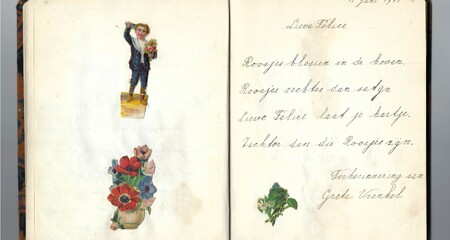 Lieve Félice
Roosjes bloeien in de hoven.
Roosjes zachter dan satijn
Lieve Felice laat je hartje.
Zachter dan die Roosjes zijn.
Ter herinnering aan
Greta Vrenkel